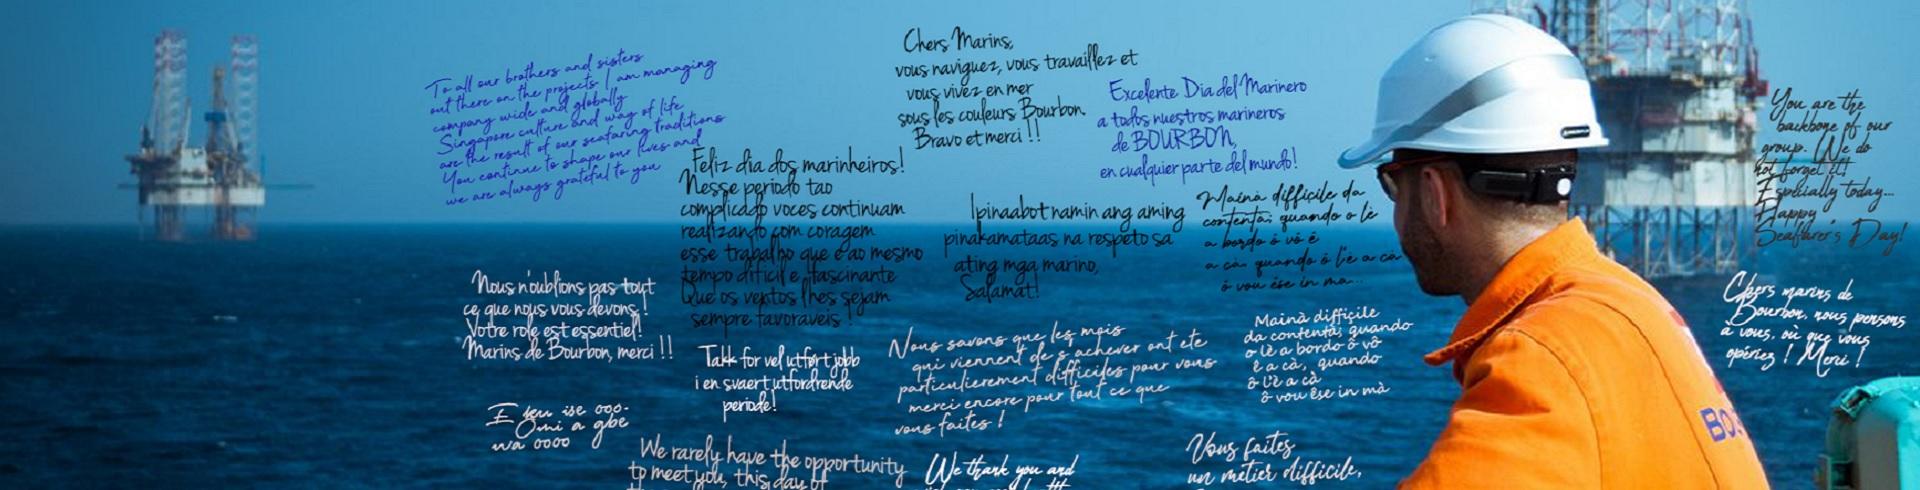 To all our brothers and sisters
out there on the projects. I am managing
company wide and globally
Singapore culture and way of life
are the result of our seafaring traditions
You continue to shape our lives and
we are always grateful to you
Chers Marins,
vous naviguez, vous travaillez et
vous vivez en mer
sous les couleurs Bourbon.
Bravo et merci !!
Excelente Dia del Marinero
a todos nuestros marineros
de BOURBON,
en cualquier parte del mundo!
You are the
backbone of our
group. We do
not forget it!
Especially today...
Happy
Seafarer's Day!
Feliz dia dos marinheiros!
Nesse periodo tao
complicado voces continuam
realizando com coragem
esse trabalho que é ao mesmo
tempo dificil e fascinante
Que os ventos lhes sejam
sempre favoraveis !
Ipinaabot namin ang aming
pinakamataas na respeto sa
ating mga marino,
Salamat!
Mainà difficile da
contentà; quando o lè
a bordo ô vô é
a cà, quando ô l'è a cà
ô vou êse in ma...
Nous n'oublions pas tout
ce que nous vous devons !
Votre role est essentiel!
Marins de Bourbon, merci !!
Chers marins de
Bourbon, nous pensons
à vous, où que vous
opériez ! Merci !
Takk for vel utfort jobb
i en svaert utfordrende
periode!
Nous savons que les mois
qui viennent de s achever ont ete
particulierement difficiles pour vous
merci encore pour tout ce que
vous faites !
Mainà difficile
da contentà; quando
o lè a bordo ô vô
è a cà, quando
ô l'è a cà
ô vou êse in mà
E ku ise ooo-
Omi a gbe
wa oooo
We rarely have the opportunity
to meet you, this day of
We thank you and
Vous faites
un métier difficile,
BO